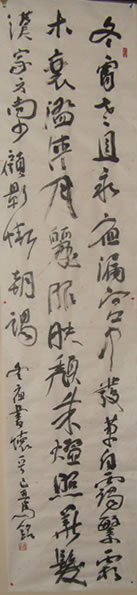 冬宵寒且永夜漏宮中發草白靄繁霜
木衰澄清月麗服映頹顏朱燈照華髮
漢家方尚少顧影慚朝謁
冬夜書懷